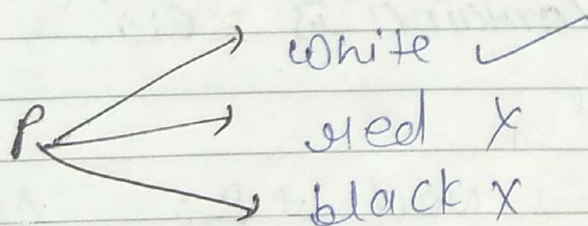 white ✓
P red X
black X